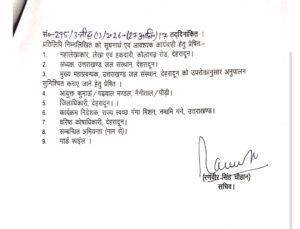 सं०-295/3नौ०(1)/2026-(273सा०)17 तद्दिनांकित ।
प्रतिलिपि निम्नलिखित को सूचनार्थ एवं आवश्यक कार्यवाही हेतु प्रेषित:-
1. महालेखाकार, लेखा एवं हकदारी, कौलागढ़ रोड, देहरादून।
2. अध्यक्ष, उत्तराखण्ड जल संस्थान, देहरादून।
3. मुख्य महाप्रबन्धक, उत्तराखण्ड जल संस्थान, देहरादून को उपरोक्तानुसार अनुपालन
सुनिश्चित कराए जाने हेतु प्रेषित।
4. आयुक्त कुमाऊं/गढ़वाल मण्डल, नैनीताल/पौड़ी।
5. जिलाधिकारी, देहरादून।
6. कार्यक्रम निदेशक, राज्य स्वच्छ गंगा मिशन, नमामि गंगे, उत्तराखण्ड।
7. वरिष्ठ कोषाधिकारी, देहरादून।
8. सम्बन्धित अभियन्ता (नाम से)।
9. गार्ड फाईल ।
(रणवीर सिंह चौहान)
सचिव।